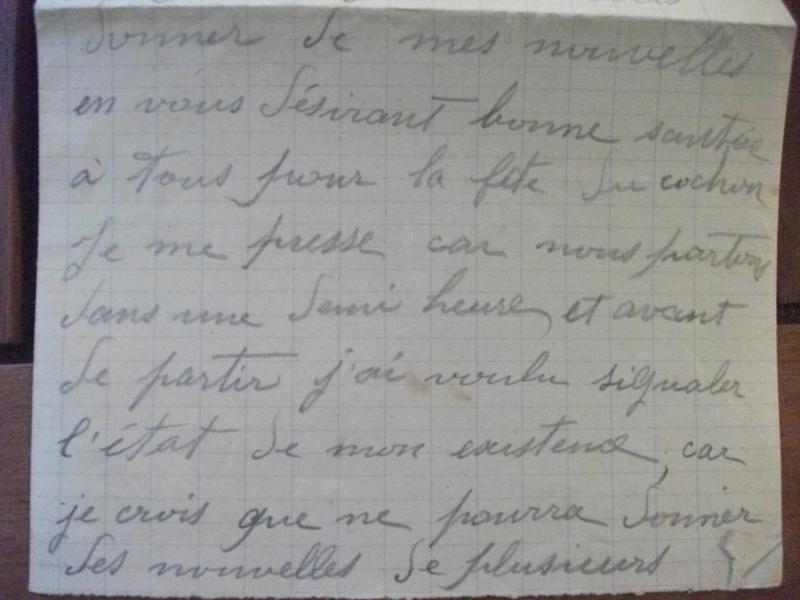 donner de mes nouvelles
en vous désirant bonne santée
à tous pour la fête du cochon
Je me presse car nous partons
dans une demi heure, et avant
de partir j'ai voulu signaler
l'état de mon existence, car
je crois que ne pourra donner
des nouvelles de plusieurs